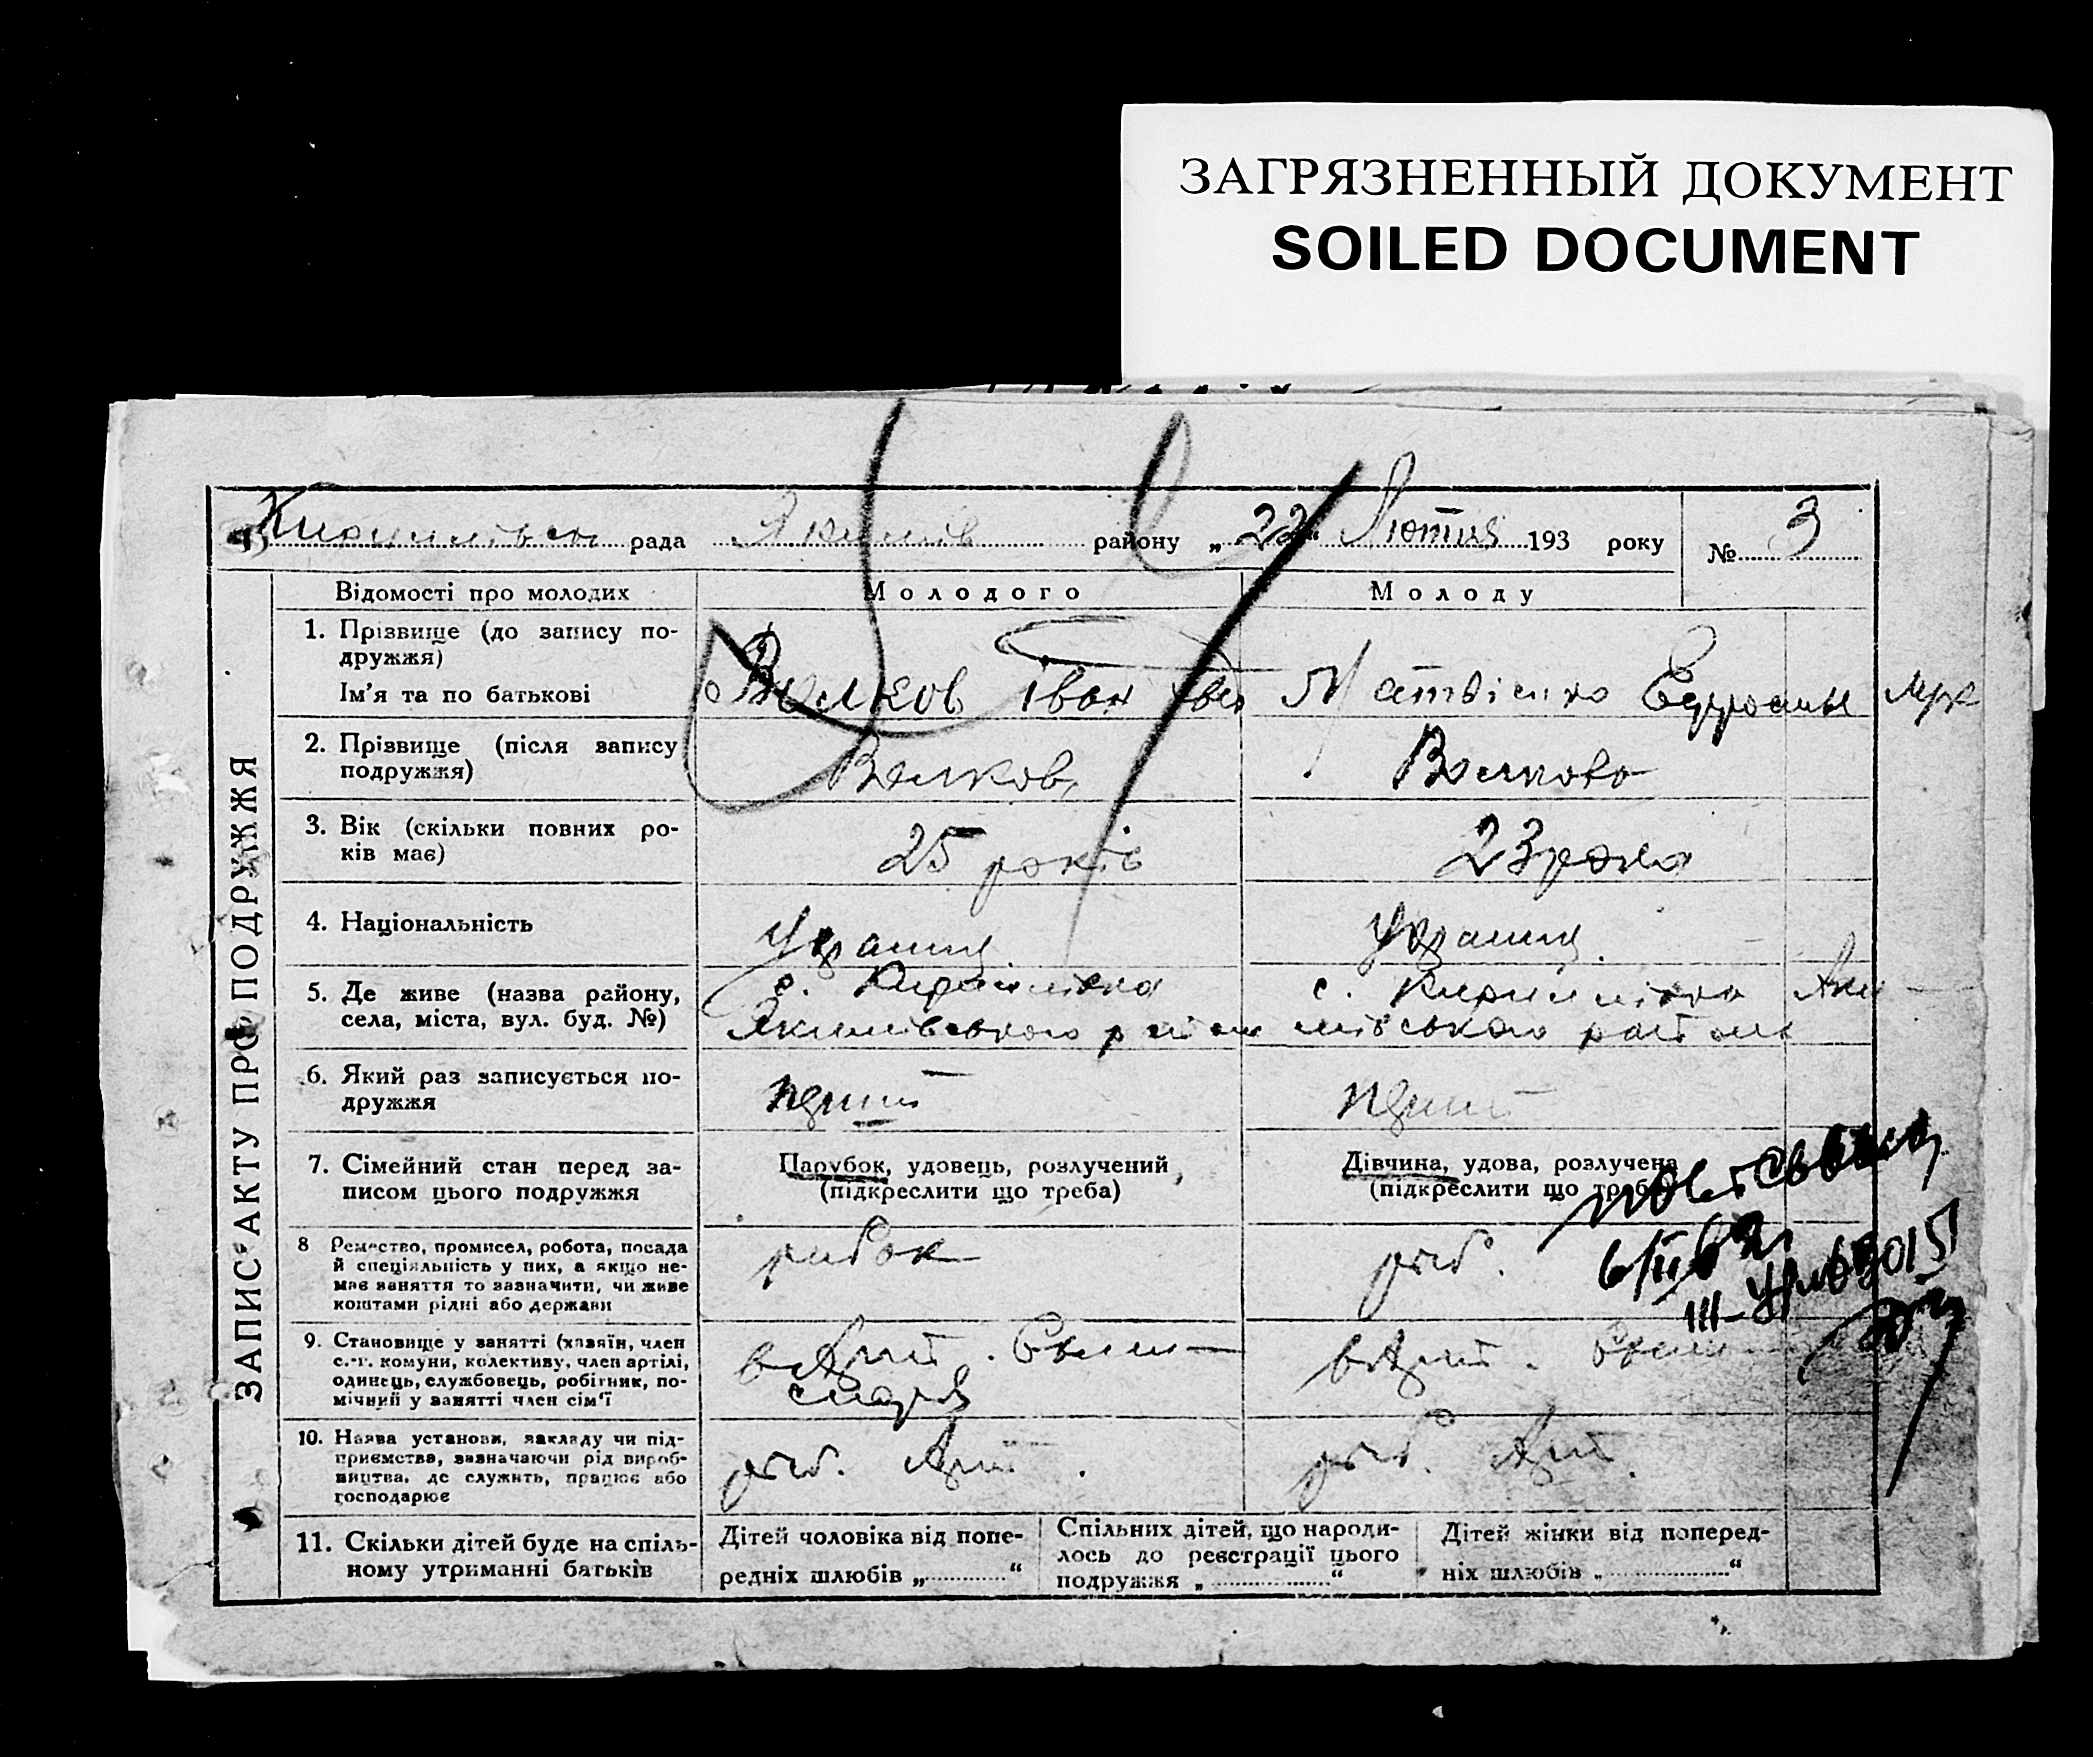 ЗАГРЯЗНЕННЫЙ ДОКУМЕНТ
SOILED DOCUMENT
рада Якимів району „22“ Лютня 193 року № 3
ЗАПИС АКТУ ПРО ПОДРУЖЖЯ
Відомості про молодих
Молодого
Молоду
1. Прізвище (до запису по-
дружжя)
Ім’я та по батькові
Волков Іван
Матвієнко
2. Прізвище (після запису
подружжя)
Волков
Волкова
3. Вік (скільки повних ро-
ків має)
25 років
23 роки
4. Національність
Україн.
Україн.
5. Де живе (назва району,
села, міста, вул. буд. №)
с. Кирилівка
Якимівського район
с. Кирилівка Яки-
мівського району
6. Який раз записується по-
дружжя
перший
перший
7. Сімейний стан перед за-
писом цього подружжя
Парубок, удовець, розлучений
(підкреслити що треба)
Дівчина, удова, розлучена
(підкреслити що треба)
8 Ремество, промисел, робота, посада
й спеціяльність у них, а якщо не-
має заняття то зазначити, чи живе
коштами рідні або держави
рибак
риб.
9. Становище у занятті (хазяїн, член
с.-г. комуни, колективу, член артілі,
одинець, службовець, робітник, по-
мічний у занятті член сім’ї
10. Назва установи, закладу чи під-
приємства, зазначаючи рід вироб-
ництва, де служить, працює або
господарює
риб. Арт.
риб. Арт.
11. Скільки дітей буде на спіль-
ному утриманні батьків
Дітей чоловіка від попе-
редніх шлюбів „ “
Спільних дітей, що народи-
лось до реєстрації цього
подружжя „ “
Дітей жінки від поперед-
ніх шлюбів „ “